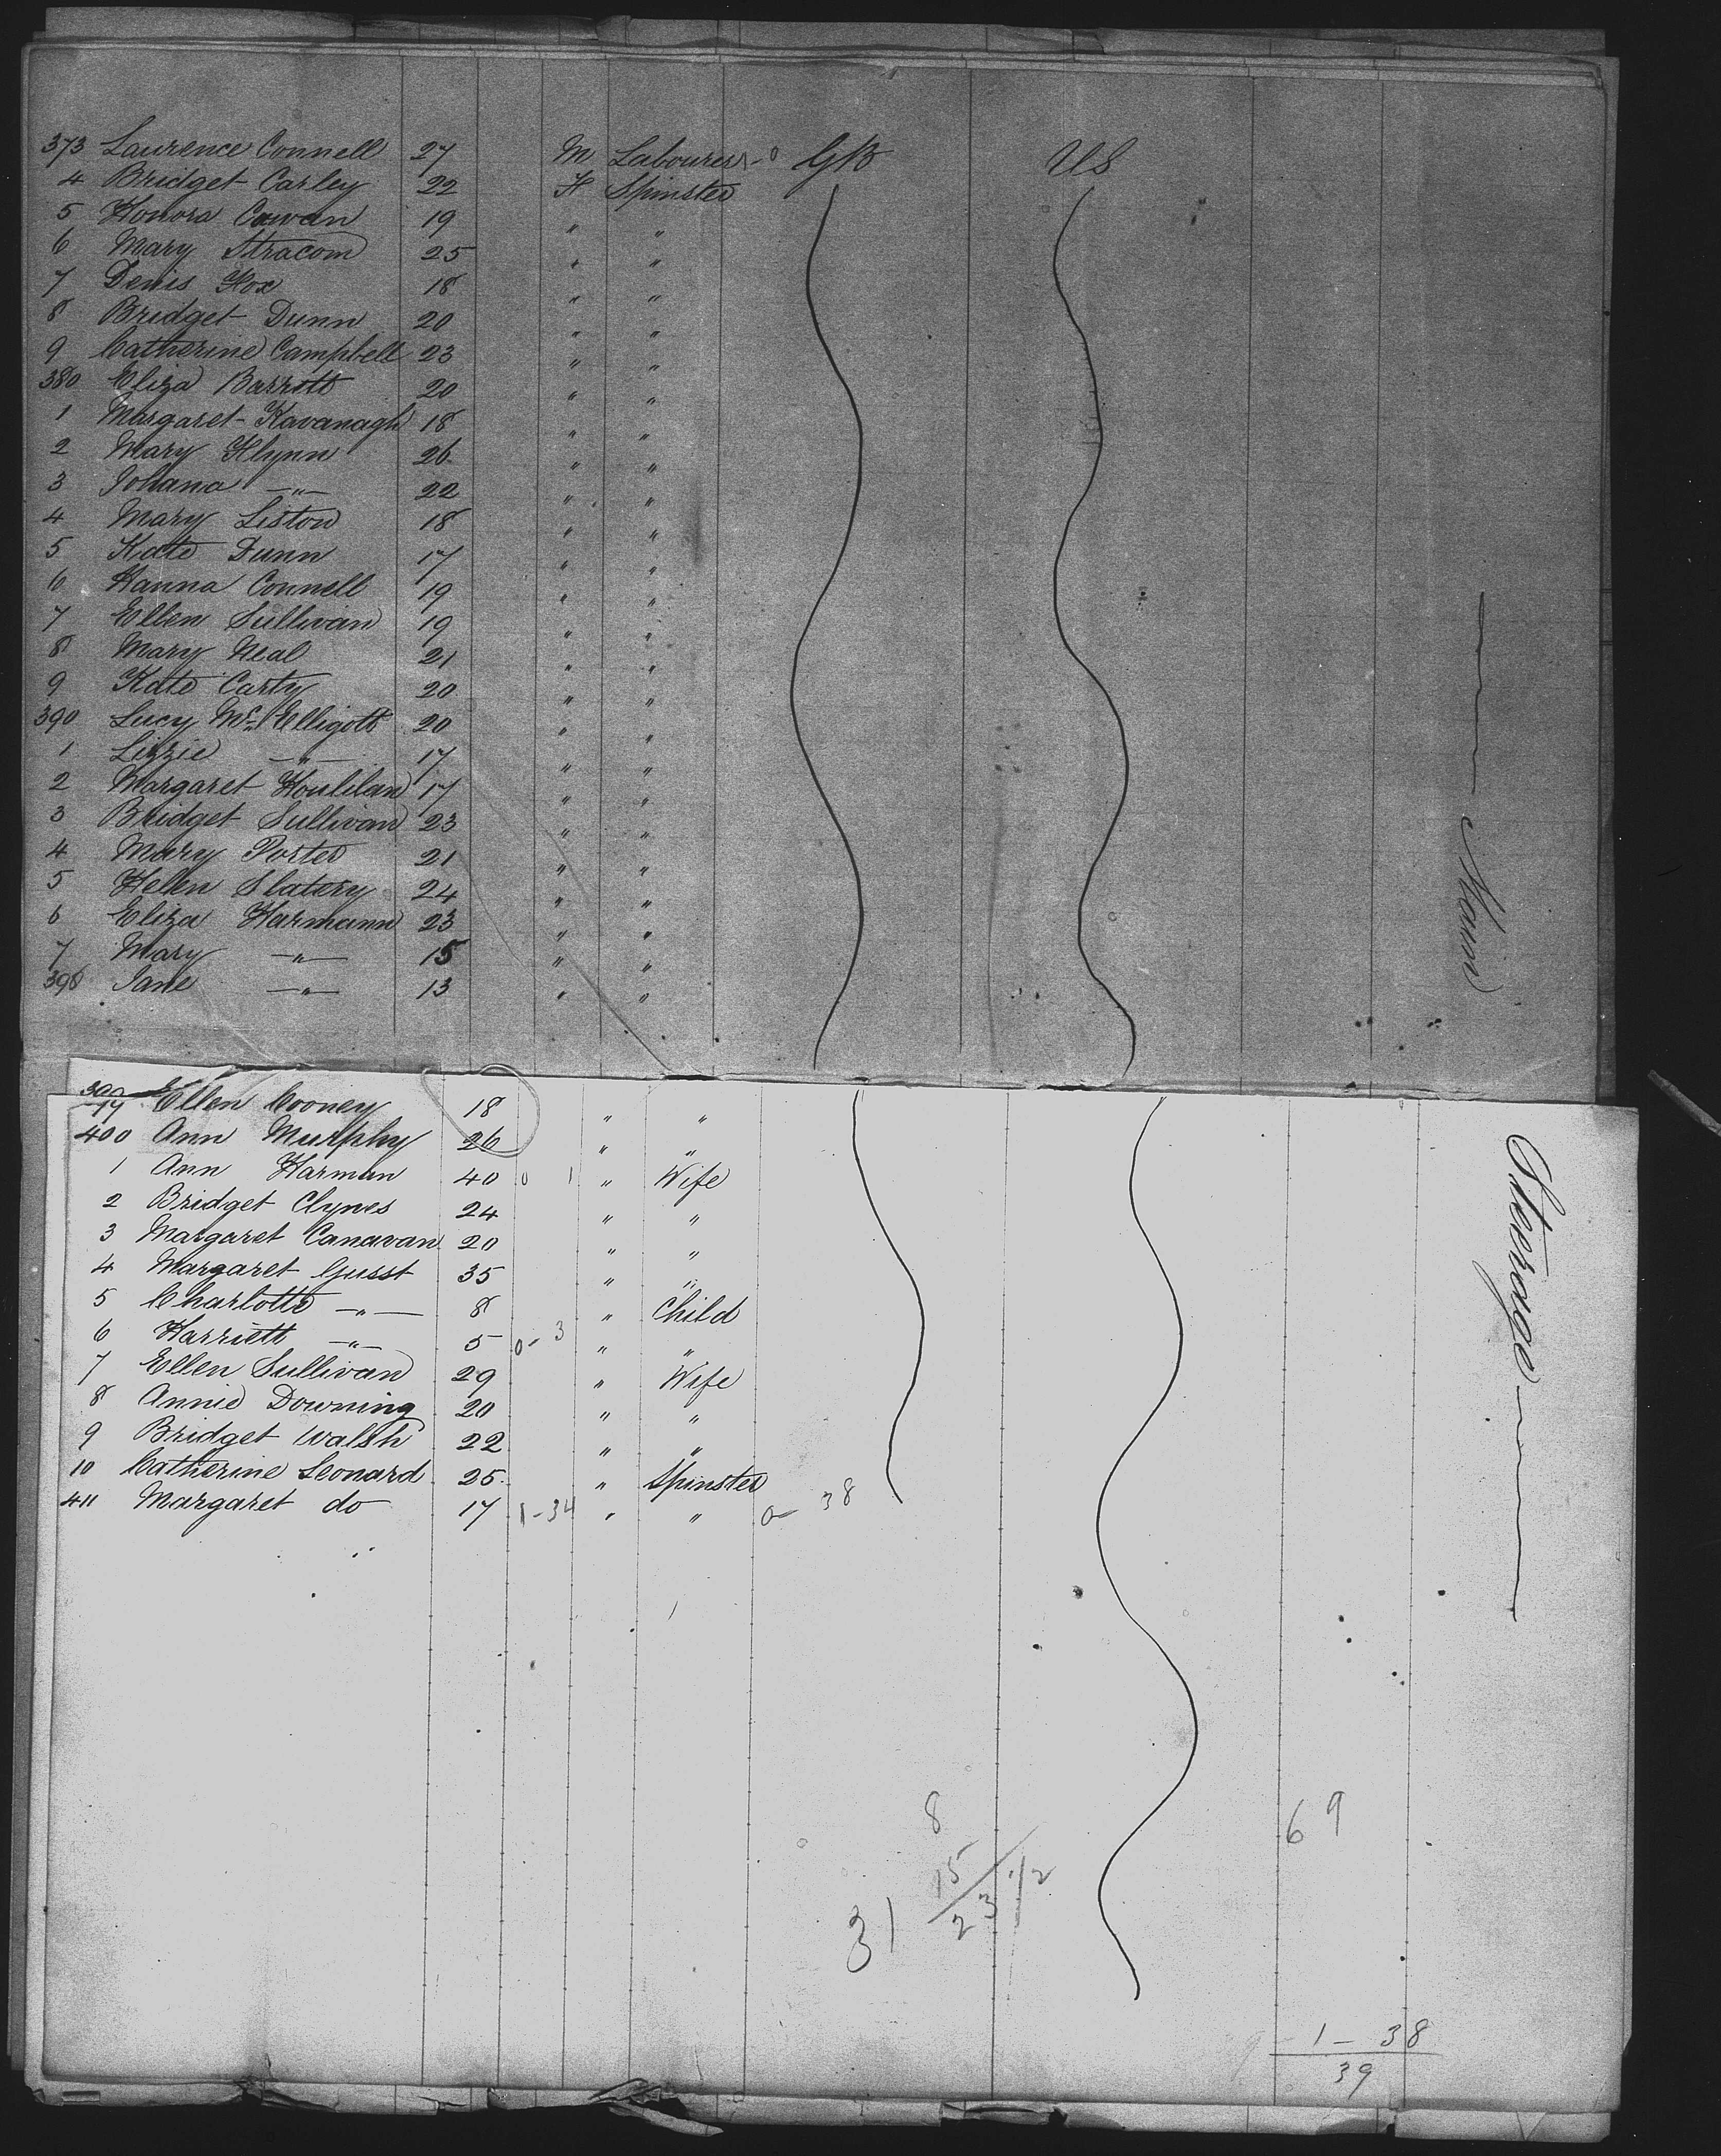 373 Laurence Connell 27 M Labourer GB US
4 Bridget Carley 22 F Spinster
5 Honora Cowan 19 " "
6 Mary Stracom 25 " "
7 Denis Fox 18 " "
8 Bridget Dunn 20 " "
9 Catherine Campbell 23 " "
380 Eliza Barrett 20 " "
1 Margaret Kavanagh 18 " "
2 Mary Flynn 26 " "
3 Johana —"— 22 " "
4 Mary Liston 18 " "
5 Kate Dunn 17 " "
6 Hanna Connell 19 " "
7 Ellen Sullivan 19 " "
8 Mary Neal 21 " "
9 Kate Carty 20 " "
390 Lucy McElligott 20 " "
1 Lizzie —"— 17 " "
2 Margaret Houlihan 17 " "
3 Bridget Sullivan 23 " "
4 Mary Porter 21 " "
5 Helen Slatery 24 " "
6 Eliza Harmann 23 " "
7 Mary —"— 15 " "
398 Jane —"— 13 " "
Main
399 Ellen Cooney 18 " "
400 Ann Murphy 26 " "
1 Ann Harman 40 0 1 " Wife
2 Bridget Clynes 24 " "
3 Margaret Canavan 20 " "
4 Margaret Gusst 35 " "
5 Charlotte —"— 8 " Child
6 Harriett —"— 5 0-3 " "
7 Ellen Sullivan 29 " Wife
8 Annie Downing 20 " "
9 Bridget Walsh 22 " "
10 Catherine Leonard 25 " Spinster
411 Margaret do 17 1-34 " " 0-38
Steerage
8
15
23 12
31
69
1-38
39